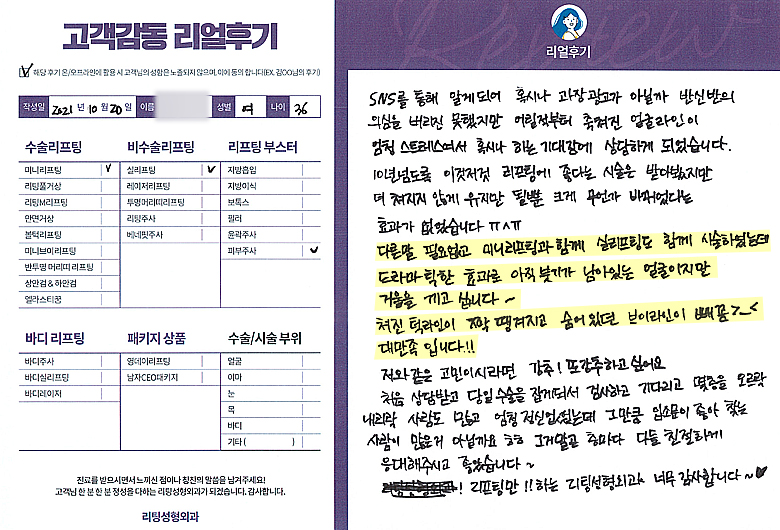 고객감동 리얼후기
해당 후기 온/오프라인에 활용 시 고객님의 성함은 노출되지 않으며, 이에 동의 합니다(EX. 김OO님의 후기)
작성일 2021 년 10 월 20 일 이름 성별 여 나이 36
수술리프팅 비수술리프팅 리프트 부스터
미니리프팅 ✓ 실리프팅 ✓ 지방흡입
리팅풀거상 레이저리프팅 지방이식
리팅M리프팅 투명머리띠리프팅 보톡스
안면거상 리팅주사 필러
본턱리프팅 베네핏주사 윤곽주사
미니브이리프팅 피부주사 ✓
반투명 머리띠 리프팅
상안검 & 하안검
엘라스티꿈
바디 리프팅 패키지 상품 수술/시술 부위
바디주사 영데이리프팅 얼굴
바디실리프팅 남자CEO대키지 이마
바디레이저 눈
목
바디
기타 ( )
진료를 받으시면서 느끼신 점이나 칭찬의 말씀을 남겨주세요!
고객님 한 분 한 분 정성을 다하는 리팅성형외과가 되겠습니다. 감사합니다.
리팅성형외과
Review
리얼후기
SNS를 통해 알게되어 혹시나 과장광고가 아닐까 반신반의
의심을 버리진 못했지만 어릴적부터 축쳐진 얼굴라인이
엄청 스트레스여서 혹시나 하는 기대감에 상담하게 되었습니다.
10년넘도록 이것저것 리프팅에 좋다는 시술은 받아봤지만
더 쳐지지 않게 유지만 될뿐 크게 무언가 바뀌었다는
효과가 없었습니다 ㅠㅅㅠ
다른말 필요없고 미니리프팅과 함께 실리프팅도 함께 시술하였는데
드라마틱한 효과로 아직 붓기가 남아있는 얼굴이지만
거울을 끼고 삽니다~
쳐진 턱라인이 쫙 땡겨지고 숨어있던 브이라인이 빼꼼>_<
대만족 입니다!!
저와같은 고민이시라면 강추! 또강추하고 싶어요
처음 상담받고 당일 수술을 잡게되서 검사하고 기다리고 몇층을 오르락
내리락 사람도 많고 엄청 정신없었는데 그만큼 입소문이 좋아 찾는
사람이 많은거 아닐까요 ㅎㅎ 그거말고 층마다 다들 친절하게
응대해주시고 좋았습니다~
! 리프팅만!! 하는 리팅성형외과 너무 감사합니다~♥